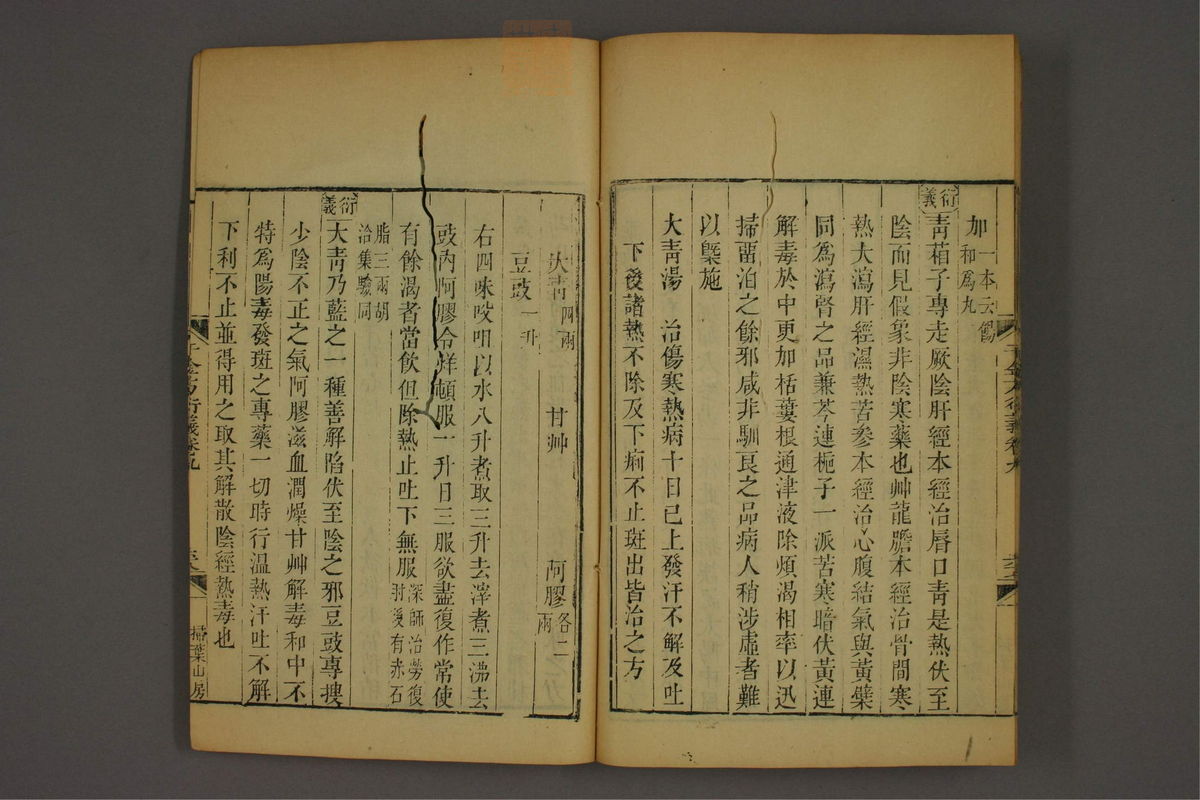 加一本云餳和爲丸
衍義
靑葙子專走厥陰肝經本經治唇口靑是熱伏至
陰而見假象非陰寒藥也艸龍膽本經治骨間寒
熱大瀉肝經濕熱苦參本經治心腹結氣與黃檗
同爲瀉腎之品兼芩連梔子一派苦寒暗伏黃連
解毒於中更加栝蔞根通津液除煩渴相率以迅
掃畱泊之餘邪咸非馴良之品病人稍涉虛者難
以槩施
大靑湯 治傷寒熱病十日已上發汗不解及吐
下後諸熱不除及下痢不止斑出皆治之方
大靑四兩 甘艸 阿膠各二兩
豆豉一升
右四味㕮咀以水八升煮取三升去滓煮三沸去
豉內阿膠令烊頓服一升日三服欲盡復作常使
有餘渴者當飮但除熱止吐下無服深師治勞復肘後有赤石
脂三兩胡洽集驗同
衍義
大靑乃藍之一種善解陷伏至陰之邪豆豉專搜
少陰不正之氣阿膠滋血潤燥甘艸解毒和中不
特爲陽毒發斑之專藥一切時行溫熱汗吐不解
下利不止並得用之取其解散陰經熱毒也
千金方衍義卷九
掃葉山房